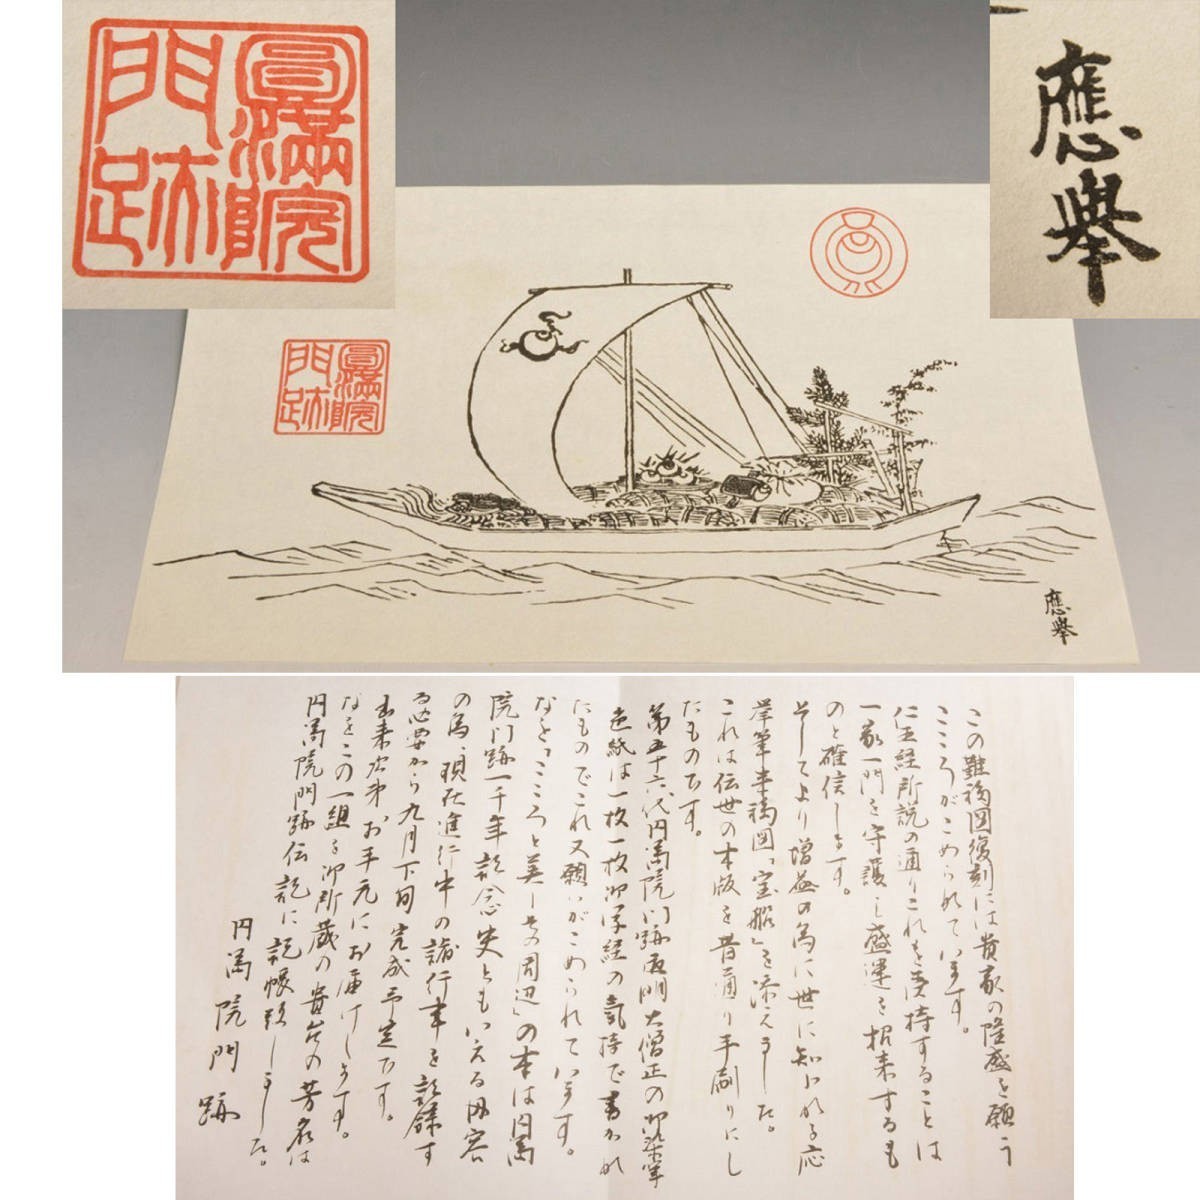 圓滿院
門跡
應擧
圓滿院
門跡
應擧
この難福図復刻には貴家の隆盛を願う
こころがこめられています。
仁王経所説の通りこれを受持することは
一家一門を守護し盛運を招来するも
のと確信します。
そしてより増益の為に世に知られる応
挙筆幸福図「宝船」を添えました。
これは伝世の木版を昔通り手刷りにし
たものです。
第五十六代円満院門跡 大僧正の御染筆
色紙は一枚一枚御写経の気持で書かれ
たものでこれ又願いがこめられています。
なを「こころと美ーその周辺」の本は円満
院門跡一千年記念史ともいえる内容
の為、現在進行中の諸行事を記録す
る必要から九月下旬完成予定です。
出来次第お手元にお届けします。
なをこの一組を御所蔵の貴台の芳名は
円満院門跡伝記に記帳致しました。
円満院門跡